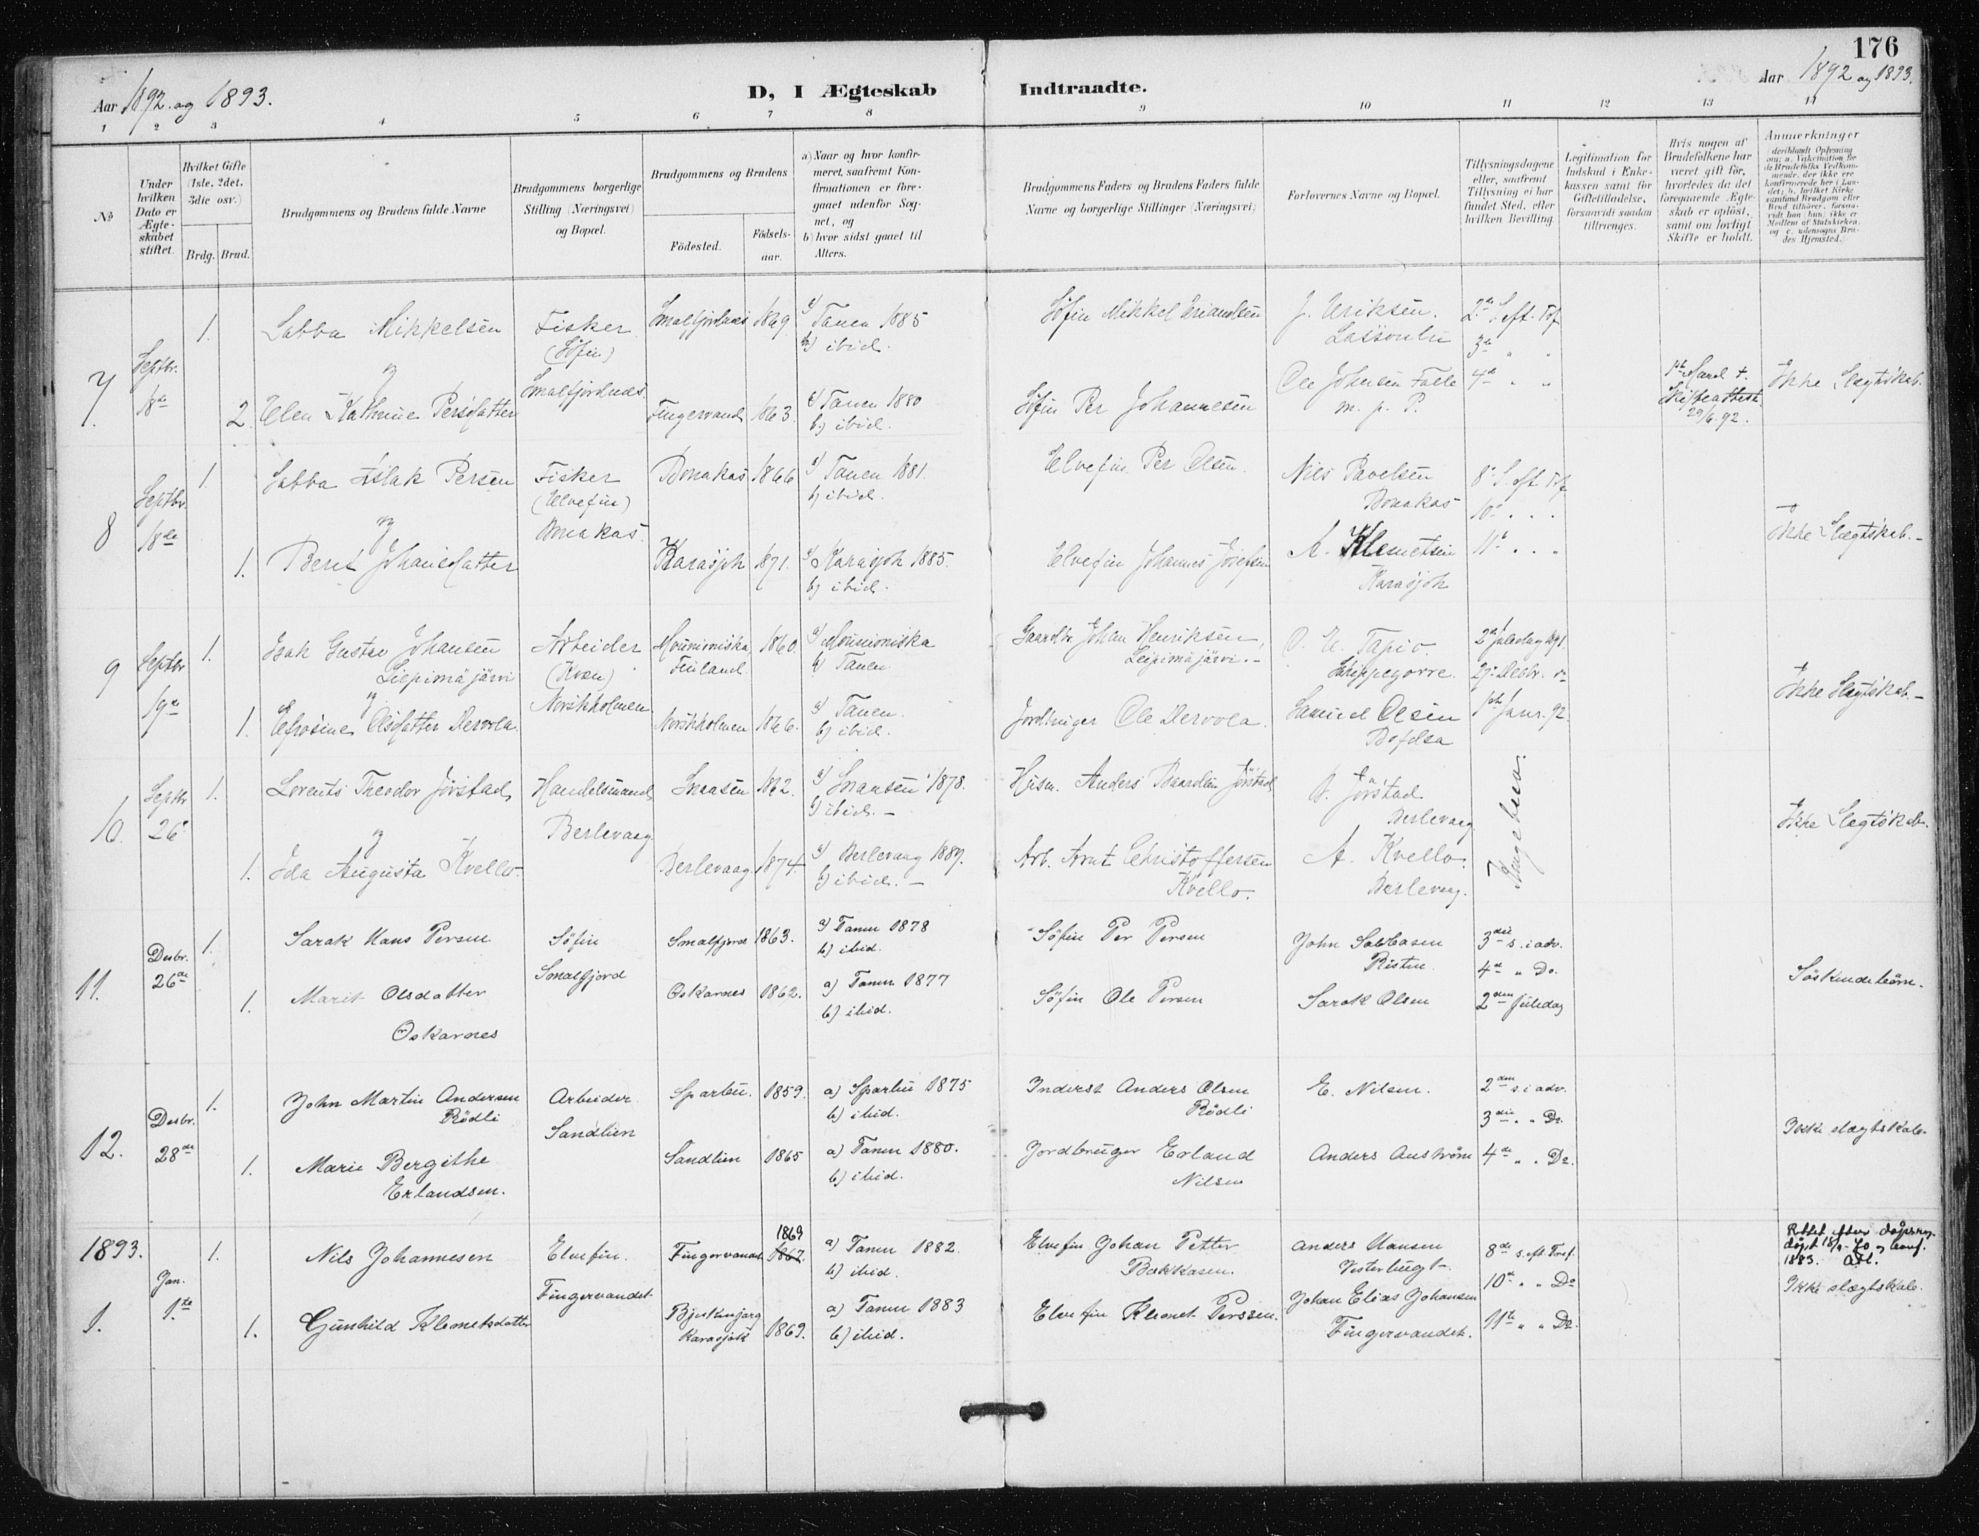 176
Aar 1892 og 1893.
D, I Ægteskab Indtraadte.
Aar 1892 og 1893.
1 2 3 4 5 6 7 8 9 10 11 12 13 14
No
Under hvilken Dato er Ægte-skabet stiftet.
Hvilket Gifte (1ste, 2det, 3die osv.)
Brdg. Brud.
Brudgommens og Brudens fulde Navne
Brudgommens borgerlige Stilling (Næringsvei) og Bopæl.
Brudgommens og Brudens
Födested.
Födsels-aar.
a) Naar og hvor konfir-meret, saafremt Kon-firmationen er fore-gaaet udenfor Sog-net, og
b) hvor sidst gaaet til Alters.
Brudgommens Faders og Brudens Faders fulde Navne og borgerlige Stillinger (Næringsvei)
Forlovernes Navne og Bopæl.
Tillysningsdagene eller, saafremt Tillysning ei har fundet Sted, efter hvilken Bevilling
Legitimation for Indskud i Enke-kassen samt for Giftetilladelse, forsaavidt saadan tiltrænges.
Hvis nogen af Brudefolkene har været gift för, hvorledes da det foregaaende Ægte-skab er oplöst, samt om lovligt Skifte er holdt.
Anmærkninger
7. Septbr. 18de
1. Sabba Mikkelsen Fisker (Söfin) Smalfjordnæs 1869. a) Tanen 1885 b) ibid. Söfin Mikkel Eriandsen J. Eriksen. 2den S. eft. Tref
og Smalfjordnæs. 3de " "
2. Elen Kathrine Persdatter Fingervand 1863. a) Tanen 1880 b) ibid. Söfin Per Johannesen Ole Johnsen m. p. P. 4de " " Skifteattest 29/6 92. Ikke Slægtskab.
8 Septbr. 18de
1. Sabba Aslak Persen Fisker (Elvefin) Bonakas 1866 a) Tanen 1881. b) ibid. Elvefin Per Olsen. Nils Pavelsen Bonakas 8de S. eft. Tref
og Bonakas. 10de " "
1. Berit Johansdatter Karasjok 1871. a) Karasjok 1885. b) ibid. Elvefin Johannes Josefsen A. Klemetsen Karasjok 11te " " Ikke Slægtskab.
9 Septbr 19de
1. Isak Gustav Johansen Liepimäjärvi Arbeider (Kvæn) Mounioniska Finland 1860. a) Mounioniska b) Tanen. Gaardbr. Johan Henriksen Leipimäjärvi. Tapio 2den Juledag 1891
og Norskholmen
1. Efrosine Olsdatter Dervola Norskholmen 1866. a) Tanen. b) ibid. Jordbruger Ole Dervola. Samuel Olsen 1ste Janr. 92 Ikke Slægtskab.
10. Septbr 26de
1. Lorents Theodor Jörstad Handelsmand Snaasen 1862. a) Snaasen 1878. b) ibid. Husm. Anders Baardsen Jörstad Jörstad Berlevaag
og Berlevaag.
1. Ida Augusta Kvello. Berlevaag. 1874. a) Berlevaag 1889. b) ibid. Arb. Arnt Christoffersen Kvello. A. Kvello. Berlevaag. Ikke Slægtskab.
11. Desbr. 26de
1. Sarak Hans Persen Söfin Smalfjord Smalfjord 1863. a) Tanen 1878 b) ibid. Söfin Per Persen John Sabbasen Risten. 3die s. i adv.
4de " Do.
1. Marit Olsdatter Oskarnes Oskarnes 1862. a) Tanen 1877 b) ibid. Söfin Ole Persen Sarak Olsen 2den Juledag Söskendebörn.
12. Desbr. 28de
1. John Martin Andersen Rödli Arbeider Sandlien Sparbu. 1859. a) Sparbu 1875 b) ibid. Inderst Anders Olsen Rödli E. Nilsen. 2den s. i adv.
3die " " Do.
1. Marie Bergithe Erlandsen. Sandlien 1865 a) Tanen 1880. b) ibid. Jordbruger Erland Nilsen Anders Austrøm 4de " " Do. Ikke slægtskab.
1893.
1. Jan. 1ste
1. Nils Johannesen Elvefin. Fingervandet Fingervandet 1869 1867. a) Tanen 1882. b) ibid. Elvefin Johan Petter Bakkasen. Anders Hansen Vesterbugt 8de s. eft. Tref.
10de " " Do
1. Gunhild Klemetsdatter Karasjok 1869. a) Tanen 1883 b) ibid. Elvefin Klemet Perssen. Johan Elias Johansen Fingervandet. 11te " " Do. Ikke slægtskab.
Rettet efter
1883.